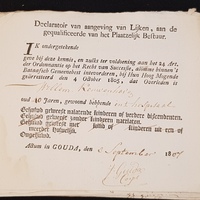 Declaratoir van aangeving van Lijken, aan de
gequalificeerde van het Plaatselijk Bestuur.
IK ondergetekende
geve bij deze kennis, en zulks ter voldoening aan het 24 Art.
der Ordonnantie op het Recht van Successie, alömme binnen 't
Bataafsche Gemeenebest intevorderen, bij Hun Hoog Mogende
gearresteerd den 4 October 1805, dat Overleden is
Willem
oud 40 Jaren, gewoond hebbende
Gehuwd geweest nalatende kinderen of verdere descendenten.
Gehuwd geweest zonder kinderen natelaten.
kinderen uit een of
meerder Huwelijk.
Ongehuwd.
Actum in GOUDA, den 3 September 1807